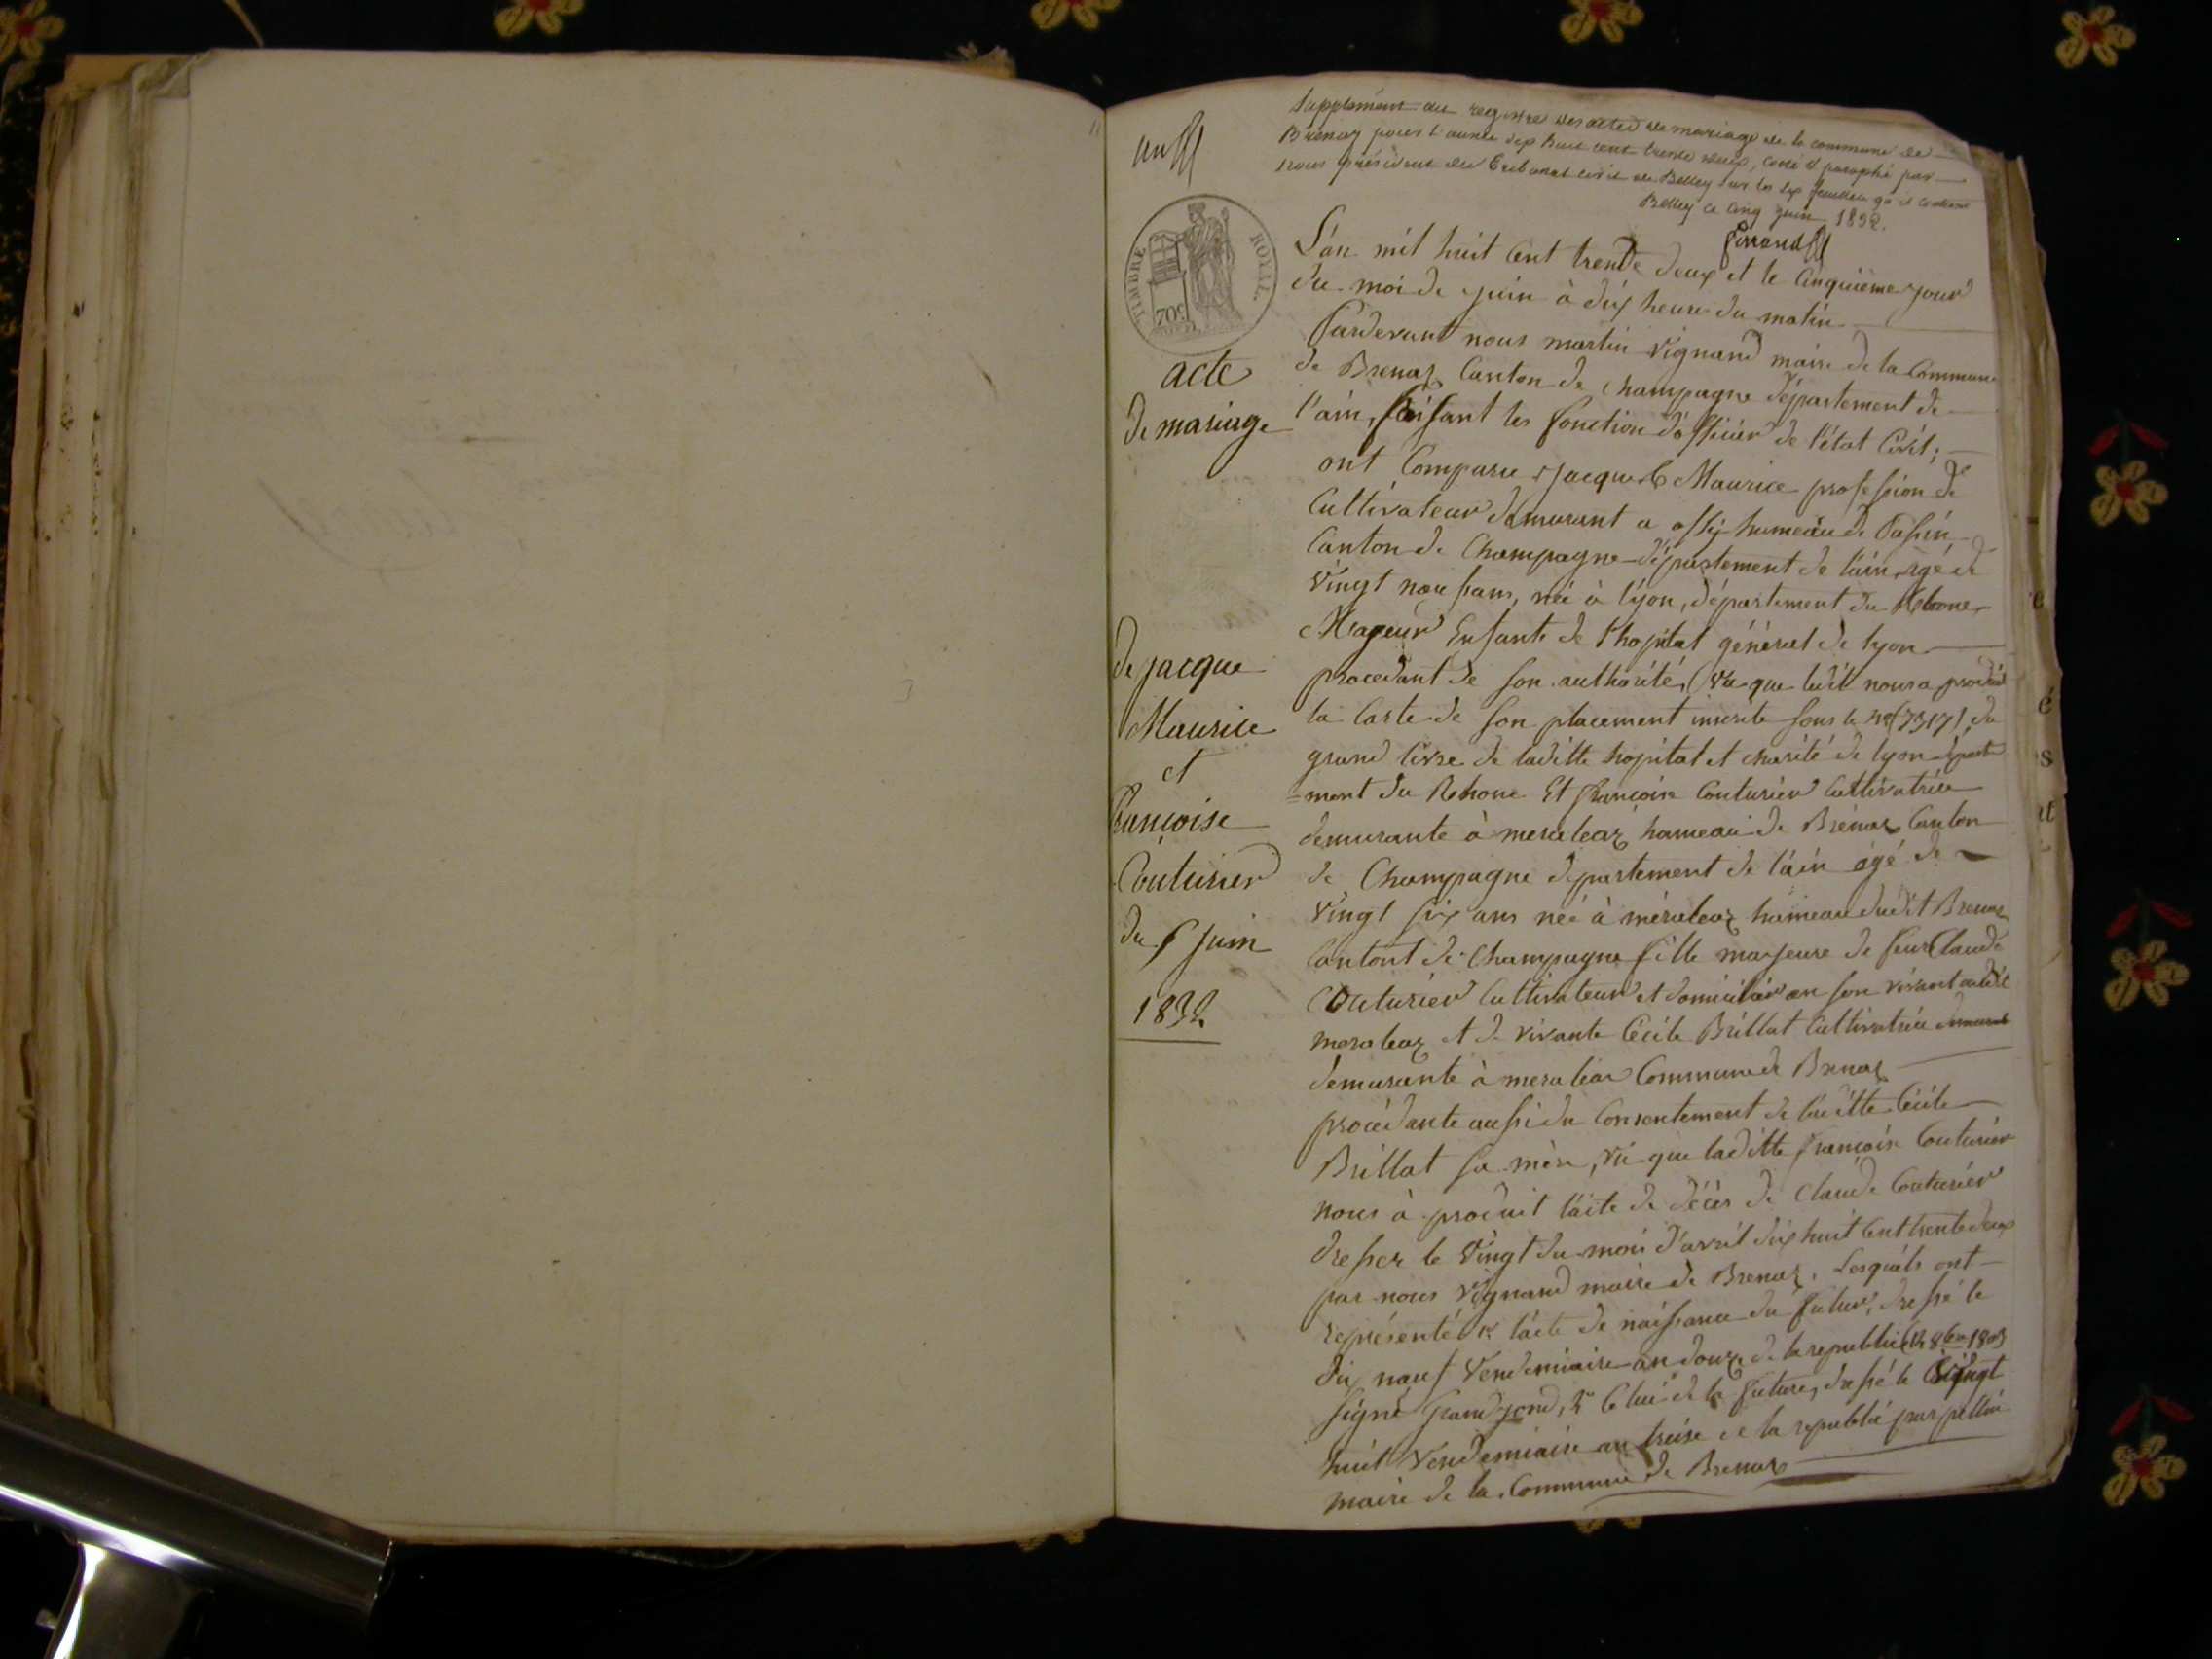 un
Supplément au registre des actes de mariage de la commune de
Brénaz pour l'année dix huit cent trente deux, coté et paraphé par
nous président du Tribunal civil de Belley sur les six feuillets qu'il contient
Belley ce cinq juin 1832.
TIMBRE ROYAL
70c
L'an mil huit Cent trente deux et le Cinquième jour
du moi de juin à dix heure du matin
Pardevant nous martin Vignand maire de la Commune
acte
de Brenaz Canton de Champagne département de
de mariage
l'ain, faisant les fonction d'officier de l'état Civil;
ont Comparu Jacque Maurice profession de
Cultivateur demurant a ossy hameau de Passin
Canton de Champagne département de l'ain, agé de
Vingt neuf ans, né à lyon, département du Rhone
Mageur Enfant de l'hopital général de lyon
de jacque
procedant de son authorité, (vu que ledit nous a produit
Maurice
la Carte de son placement inscrite sous le no (7317) du
et
grand livre de laditte hopital et charité de lyon départe
=ment du Rehone Et françoise Couturier Cultivatrice
françoise
demurante à meraleaz hameau de Brénaz Canton
Couturier
de Champagne département de l'ain agé de
Vingt six ans née à méraleaz hameau dudit Brenaz
du 5 Juin
Cantont de Champagne fille majeure de feur Claude
1832
Couturier Cultivateur et domicilier en son vivant audit
meraleaz et de vivante Cécile Brillat Cultivatrice demurant
demurante à meraleaz Commune de Brenaz
procédante aussi du Consentement de laditte Cécile
Brillat sa mère, vu que laditte françoise Couturier
nous à produit l'acte de décès de Claude Couturier
dresser le Vingt du mois d'avril dix huit Cent trente deux
par nous Vignand maire de Brenaz. Lesquels ont
représenté 1° l'acte de naissance du futur, dressé le
dix neuf Vendemiaire an douze de la republic (12 8bre 1803
signé Grandjond, 2° Celui de la future, dressé le Vingt
huit Vendemiaire an treise de la republic par
maire de la Commune de Brenaz